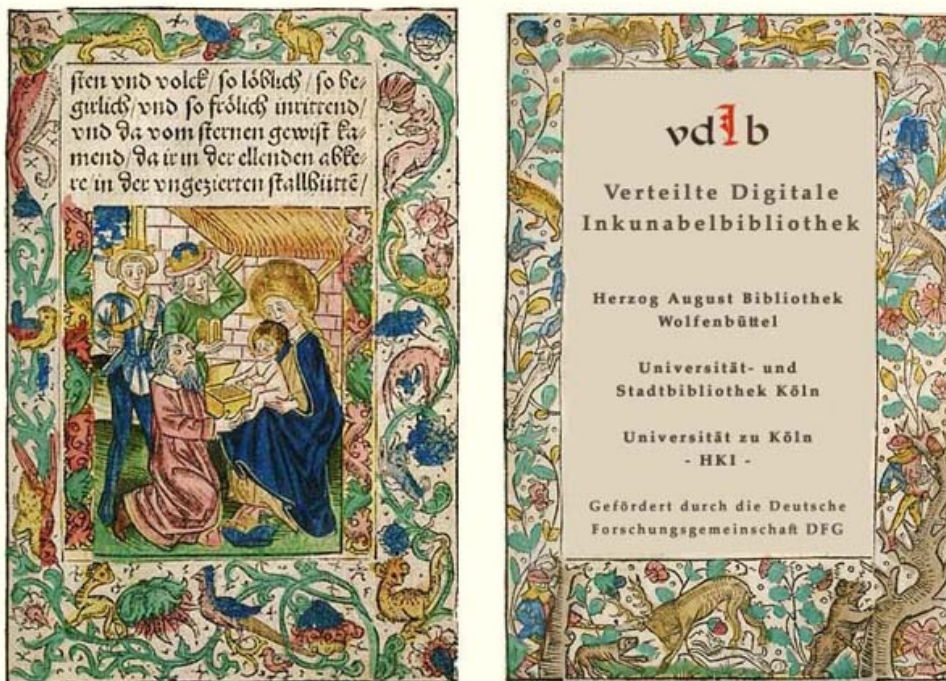 sten vnd volck / so löblich / so be-
girlich / vnd so frölich inrittend /
vnd da vom sternen gewist ka-
mend / da ir in der ellenden abke-
re in der vngezierten stallhüttē /
vdIb
Verteilte Digitale
Inkunabelbibliothek
Herzog August Bibliothek
Wolfenbüttel
Universität- und
Stadtbibliothek Köln
Universität zu Köln
- HKI -
Gefördert durch die Deutsche
Forschungsgemeinschaft DFG